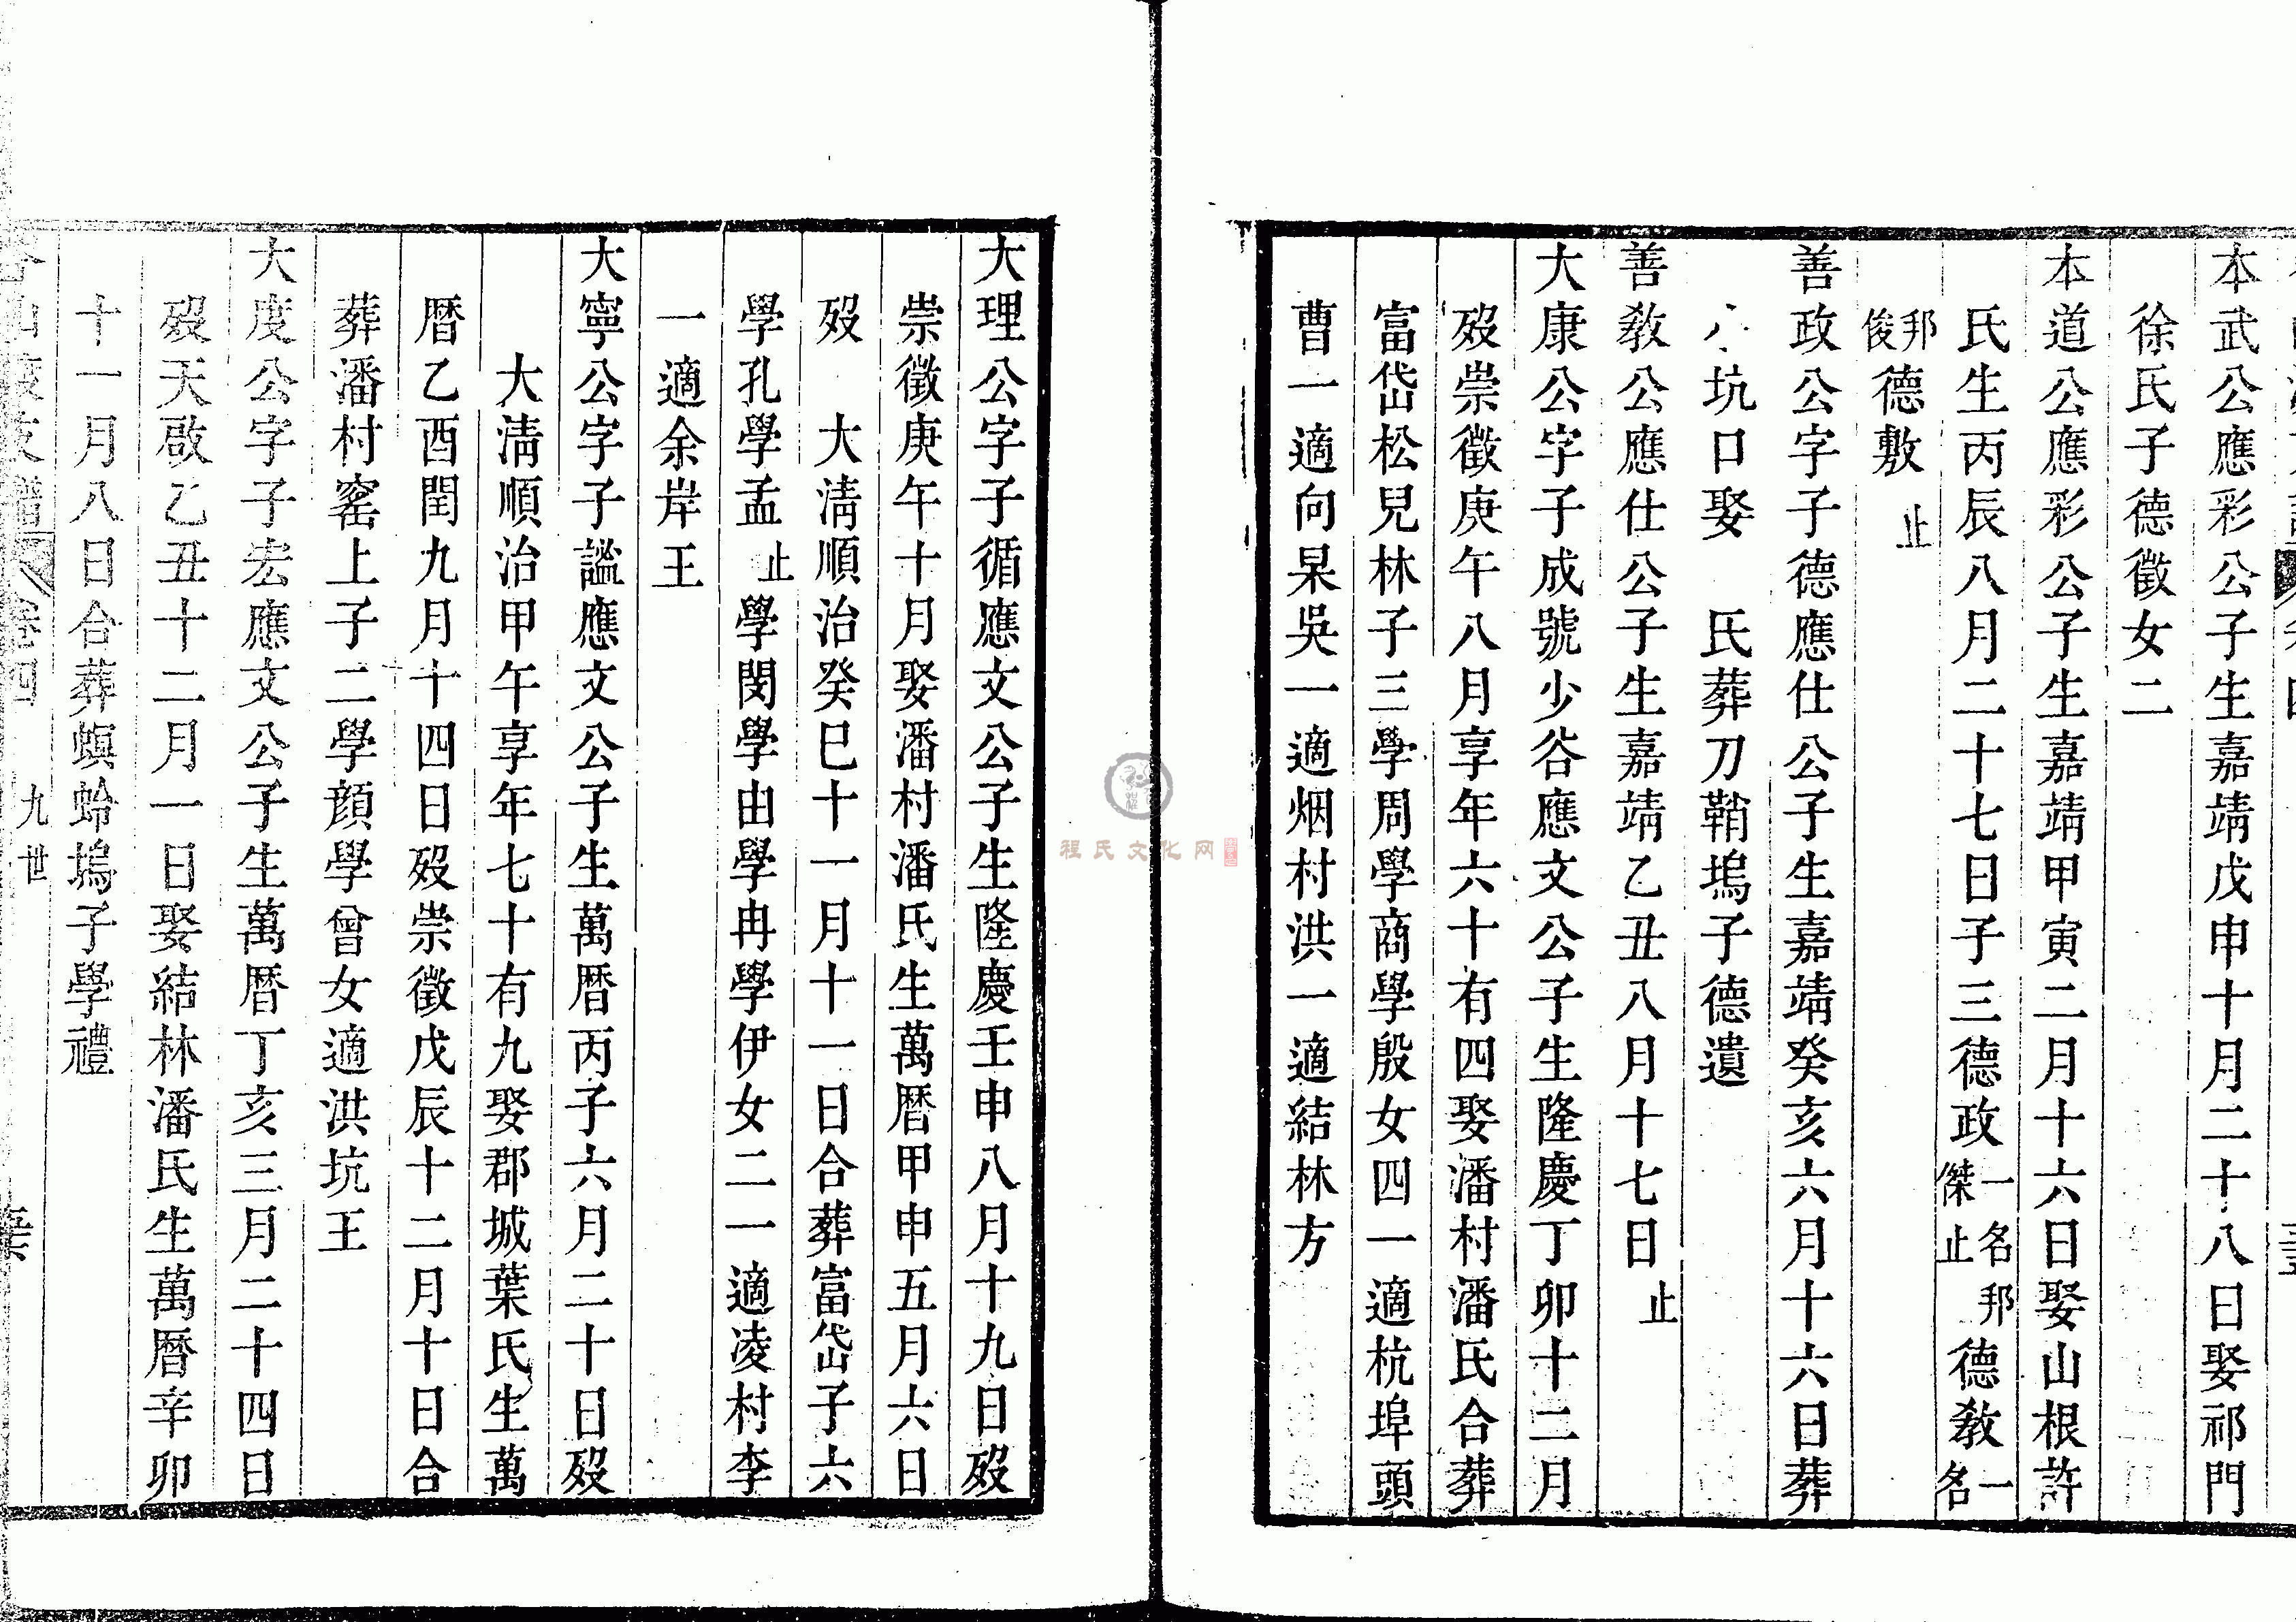 本武公應彩公子生嘉靖戊申十月二十八日娶祁門
徐氏子德徵女二
本道公應彩公子生嘉靖甲寅二月十六日娶山根許
氏生丙辰八月二十七日子三德政一名邦傑止德教一名
邦俊德敷止
善政公字子德應仕公子生嘉靖癸亥六月十六日葬
坑口娶 氏葬刀鞘塢子德遺
善教公應仕公子生嘉靖乙丑八月十七日止
大康公字子成號少谷應文公子生隆慶丁卯十二月
歿崇徵庚午八月享年六十有四娶潘村潘氏合葬
富岱松兒林子三學周學商學殷女四一適杭埠頭
曹一適向杲吳一適烟村洪一適結林方
大理公字子循應文公子生隆慶壬申八月十九日歿
崇徵庚午十月娶潘村潘氏生萬曆甲申五月六日
歿 大清順治癸巳十一月十一日合葬富岱子六
學孔學孟止學閔學由學冉學伊女二一適凌村李
一適余岸王
大寧公字子謐應文公子生萬曆丙子六月二十日歿
大清順治甲午享年七十有九娶郡城葉氏生萬
曆乙酉閏九月十四日歿崇徵戊辰十二月十日合
葬潘村窰上子二學顔學曾女適洪坑王
大度公字子宏應文公子生萬曆丁亥三月二十四日
歿天啟乙丑十二月一日娶結林潘氏生萬曆辛卯
十一月八日合葬螟蛉塢子學禮
支譜 卷四 九世
程氏文化网